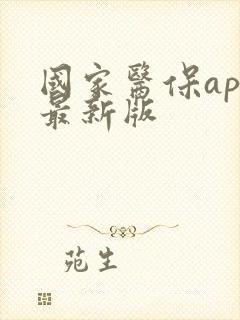 國家醫保ap
最新版
苑生